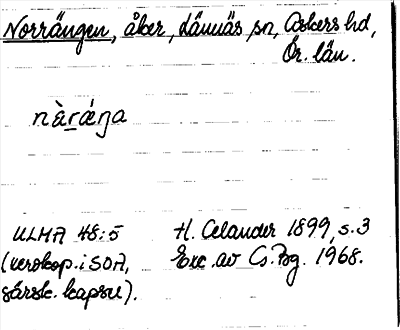 Norrängen, åker, Lännäs sn, Askers hd,
Ör. län.
nàrǽŋa
ULMA 48:5 H. Celander 1899, s. 3
(xeroxkop. i SOA, Exc. av Cs. Bg. 1968.
särsk. kapsel).